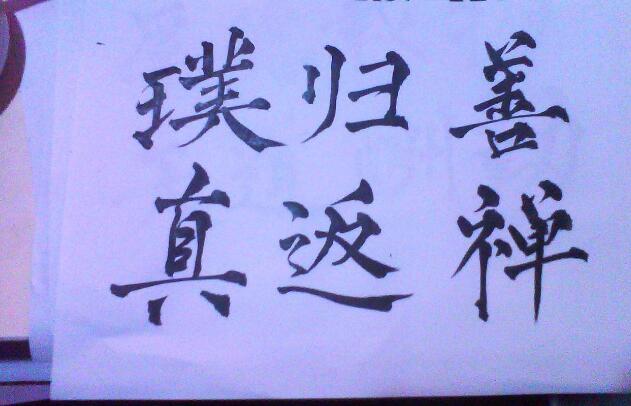 善禅
归返
璞真